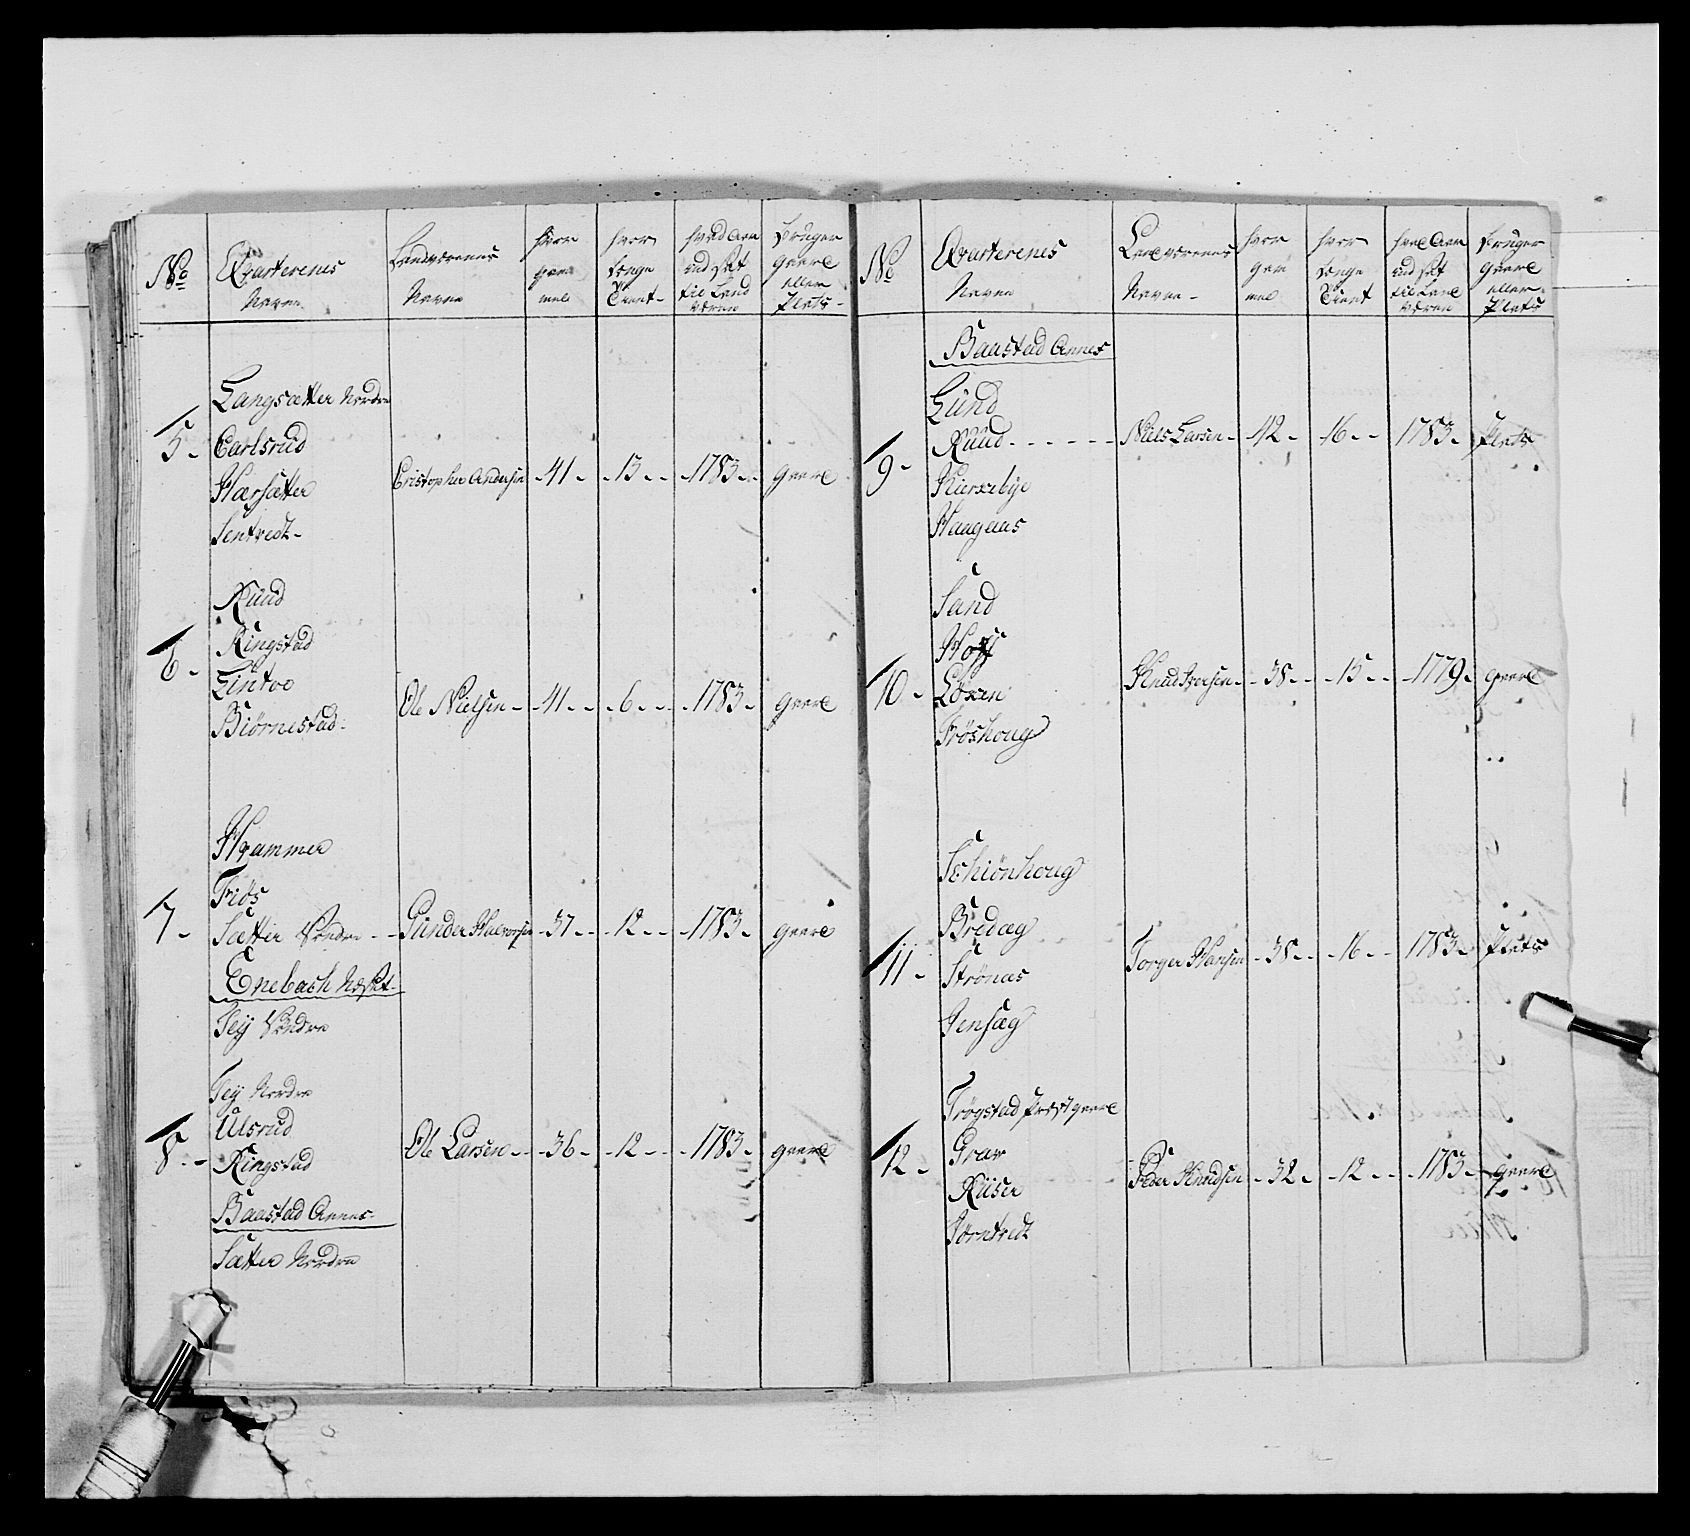 No
Qvarterenes
Navne
Landværenes
Navne
hvor
gam
mel
hvor
længe
tient
hvad Aar
ud sat
til Land
væren
bruger
gaard
eller
Plads
5
Langsætter Nordre
Carlsrud
Harsætter
Sentvedt
Cristopher Andersen 41 13 1783 gaard
6
Ruud
Ringstad
Lintoe
Biørnestad
Ole Nielsen 41 6 1783 gaard
7
Hammer
Friøs
Sætter Søndre
Enebach
Tej Søndre
Gunder Halvorsen 37 12 1783 gaard
8
Tej Nordre
Ulsrud
Ringstad
Baastad Annex
Sætter Nordre
Ole Larsen 36 12 1783 gaard
No
Qvarterenes
Navne
Landværenes
Navne
hvor
gam
mel
hvor
længe
tient
hvad Aar
ud sat
til Land
væren
bruger
gaard
eller
Plads
Baastad Annex
9
Lund
Ruud
Kierrebye
Haagaas
Niels Larsen 42 16 1783 Plads
10
Sand
Hoff
Løren
Frøshoug
Knud Iversen 38 15 1779 gaard
11
Schiønhoug
Bredag
Strønas
Jensæg
Torger Hansen 38 16 1783 Plads
12
Trøgstad Præstgaard
Grav
Riiser
Jørntvedt
Peder Knudsen 32 12 1783 gaard